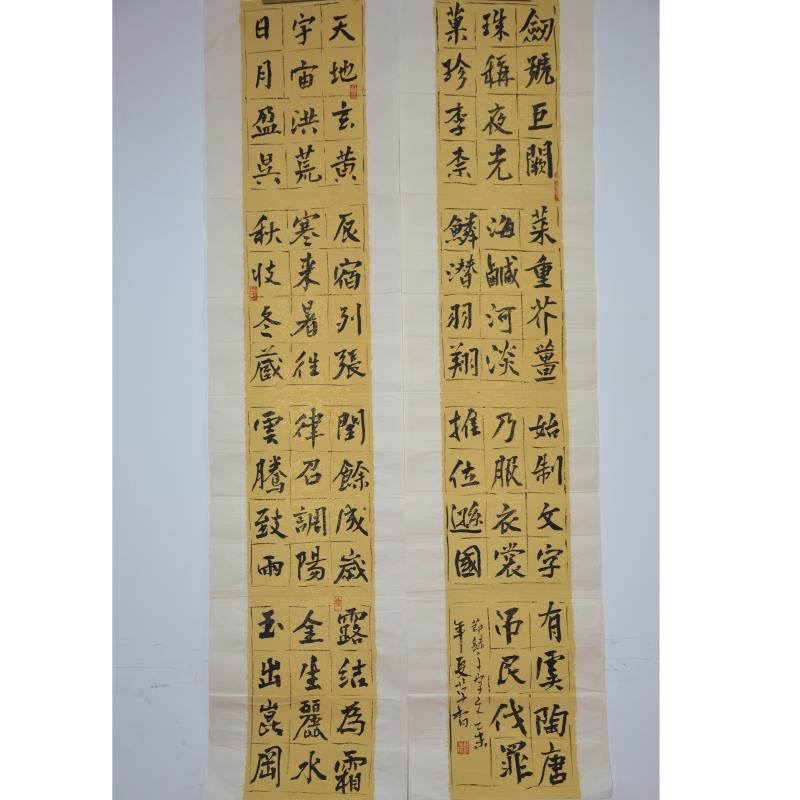 天地玄黄
宇宙洪荒
日月盈昃
辰宿列張
寒来暑往
秋收冬藏
閏餘成歲
律召調陽
雲騰致雨
露結為霜
金生麗水
玉出崑岡
劒號巨闕
珠稱夜光
菓珍李柰
菜重芥薑
海鹹河淡
鱗潛羽翔
始制文字
乃服衣裳
推位遜國
有虞陶唐
吊民伐罪
節録千字文乙未
年夏